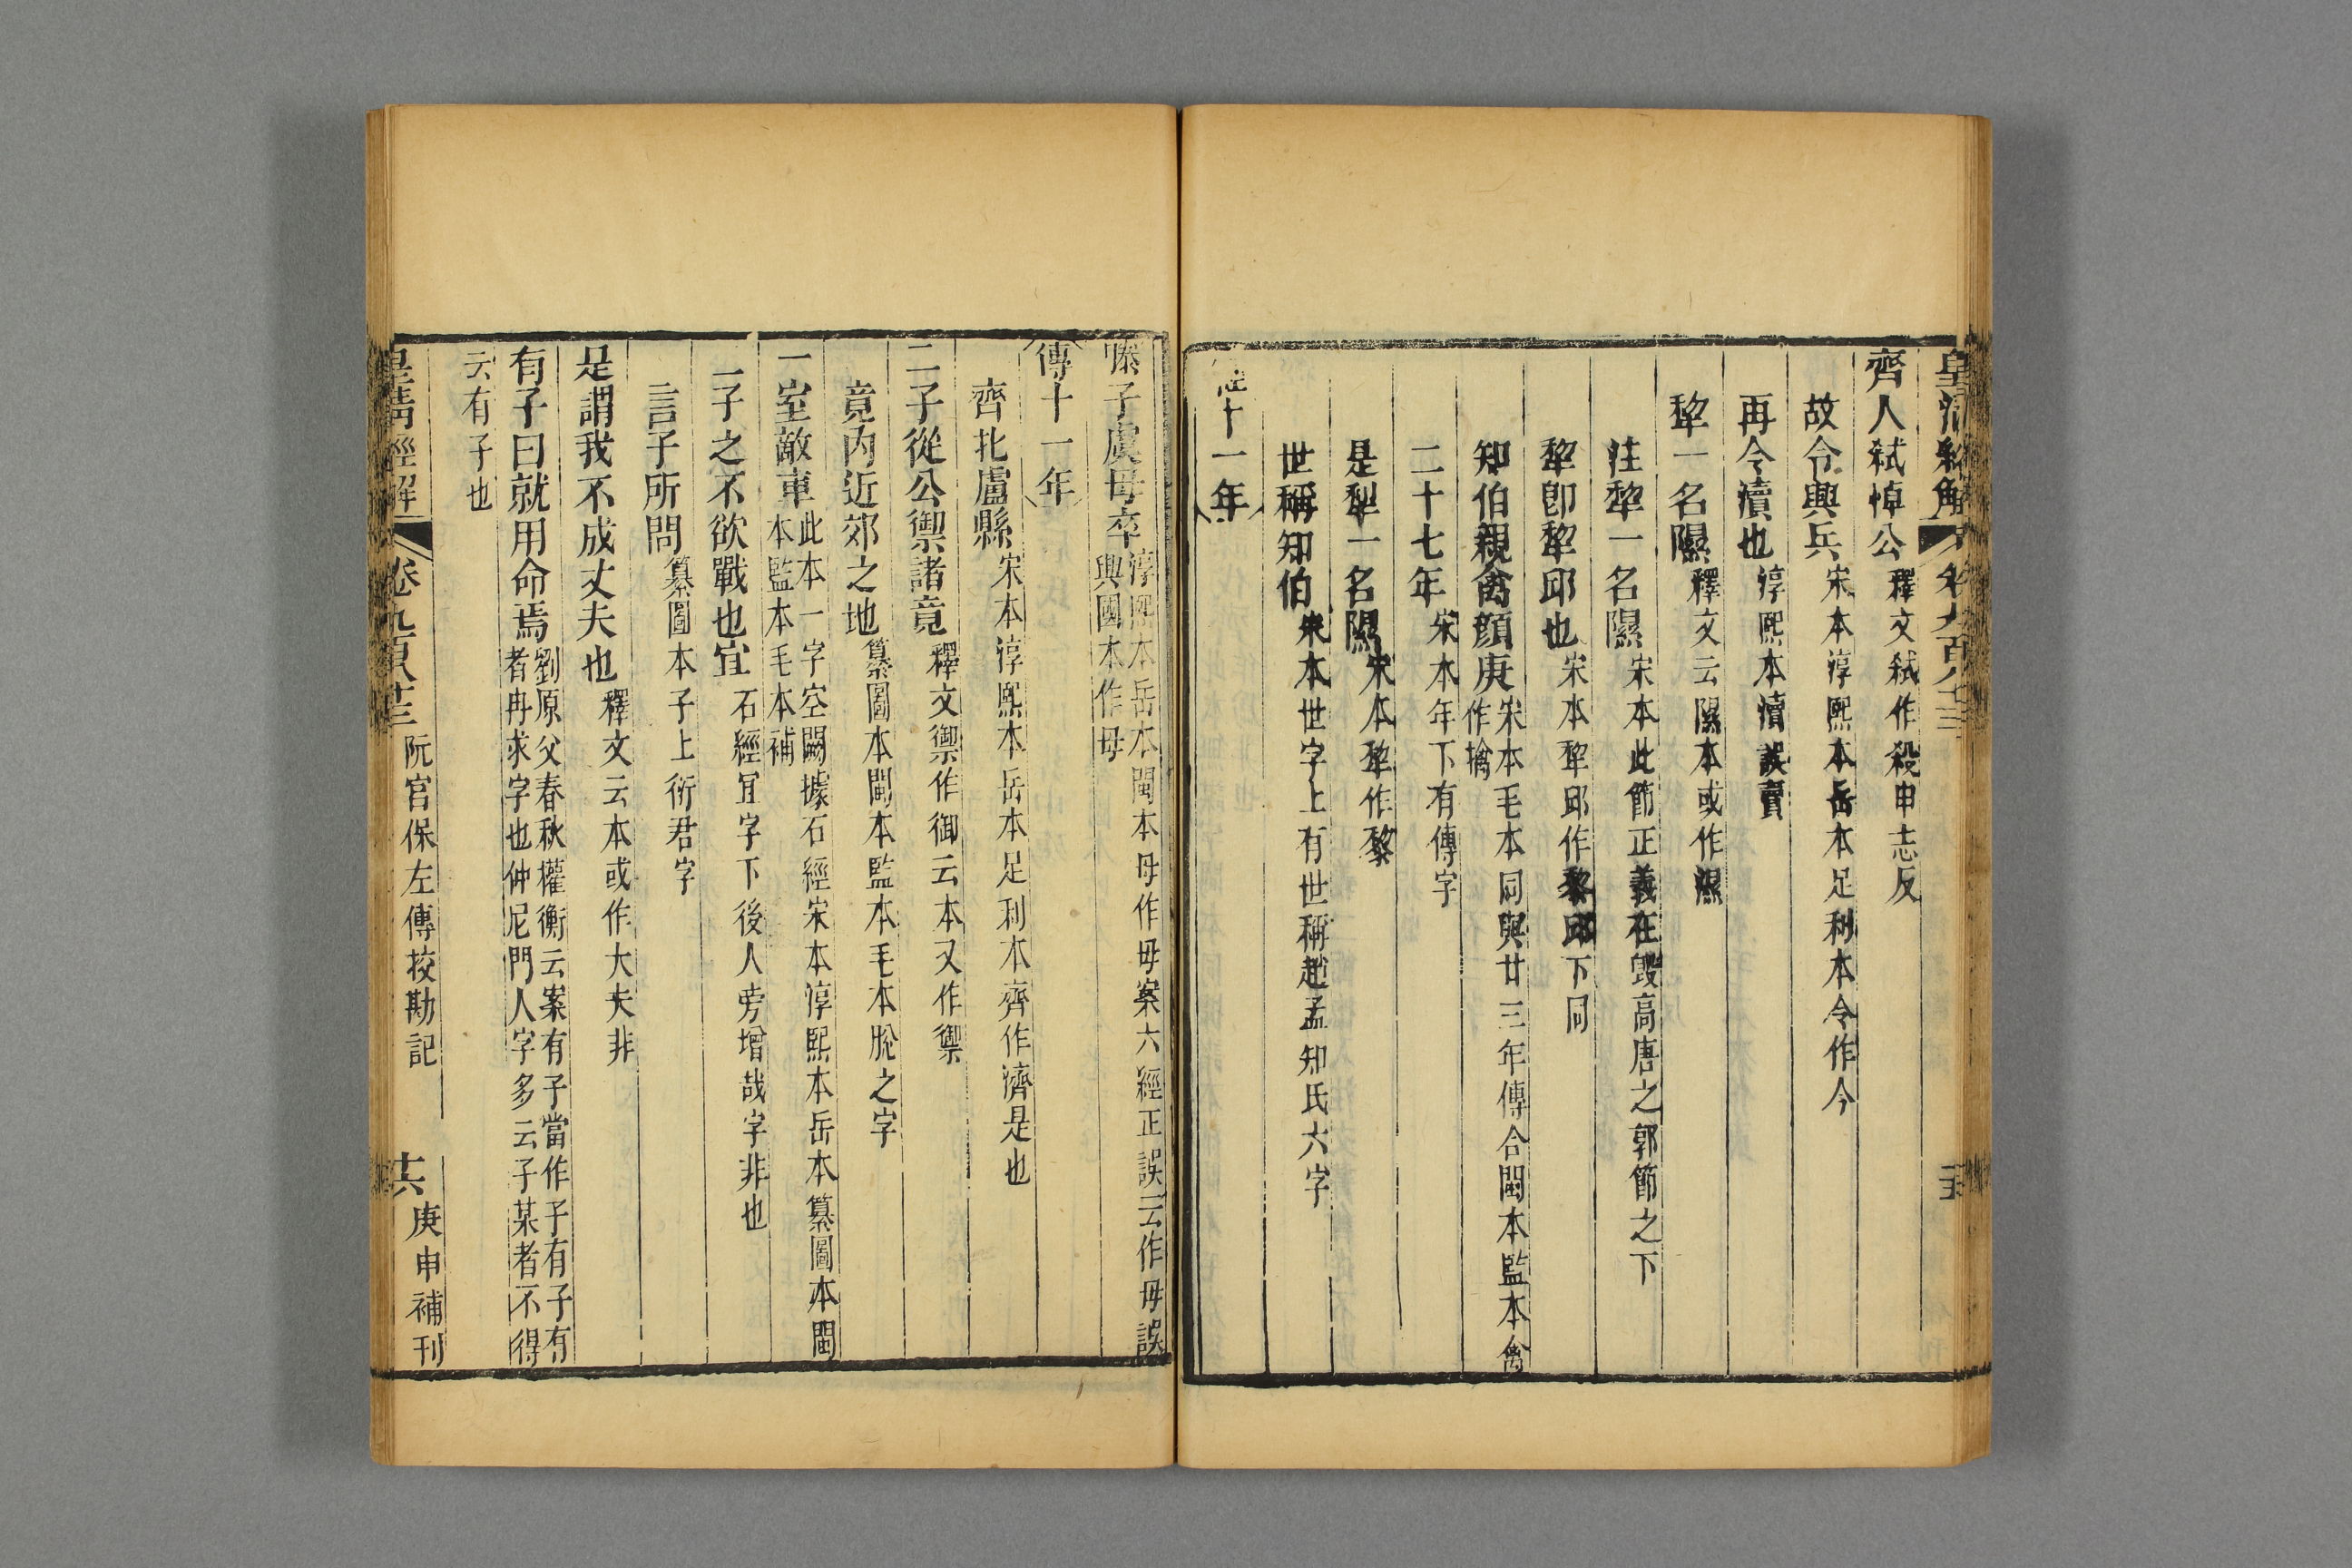 皇清經解 卷九百八十三
齊人弒悼公 釋文弒作殺申志反
故令興兵 宋本淳熙本岳本足利本令作今
再令瀆也 淳熙本瀆誤賣
犂一名隰 釋文云隰本或作濕
注犂一名隰 宋本此節正義在毁高唐之郭節之下
犂卽犂邱也 宋本犂邱作黎邱下同
知伯親禽顏庚 宋本毛本同與廿三年傳合閩本監本禽作擒
二十七年 宋本年下有傳字
是犂一名隰 宋本犂作黎
世稱知伯 宋本世字上有世稱趙孟知氏六字
經十一年
滕子虞母卒 淳熙本岳本閩本母作毋案六經正誤云作母誤興國本作毋
傳十一年
齊北盧縣 宋本淳熙本岳本足利本齊作濟是也
二子從公禦諸竟 釋文禦作御云本又作禦
竟內近郊之地 纂圖本閩本監本毛本脫之字
一室敵車 此本一字空闕據石經宋本淳熙本岳本纂圖本閩本監本毛本補
二子之不欲戰也宜 石經宜字下後人旁增哉字非也
言子所問 纂圖本子上衍君字
是謂我不成丈夫也 釋文云本或作大夫非
有子曰就用命焉 劉原父春秋權衡云案有子當作子有子有者冉求字也仲尼門人字多云子某者不得
云有子也
皇清經解 卷九百八十三 阮宮保左傳挍勘記 十六 庚申補刊